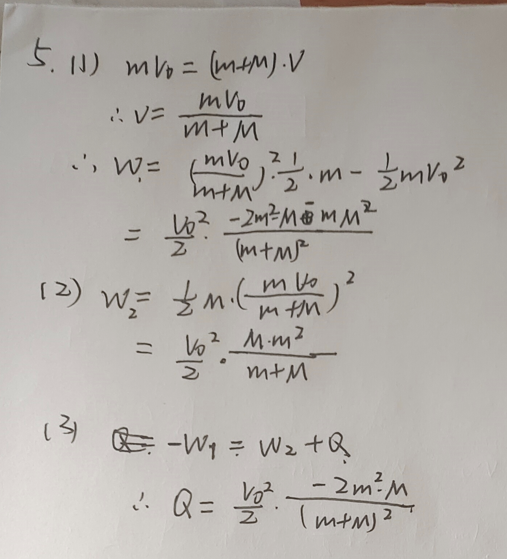 5. (1) mV₀ = (m+M)·V
∴ V = mV₀/(m+M)
∴ W₁ = (mV₀/(m+M))²·1/2·m − 1/2mV₀²
= V₀²/2 · (−2m²M − mM²)/(m+M)²
(2) W₂ = 1/2 M·(mV₀/(m+M))²
= V₀²/2 · M·m²/(m+M)
(3) −W₁ = W₂ + Q
∴ Q = V₀²/2 · (−2m²M)/(m+M)²